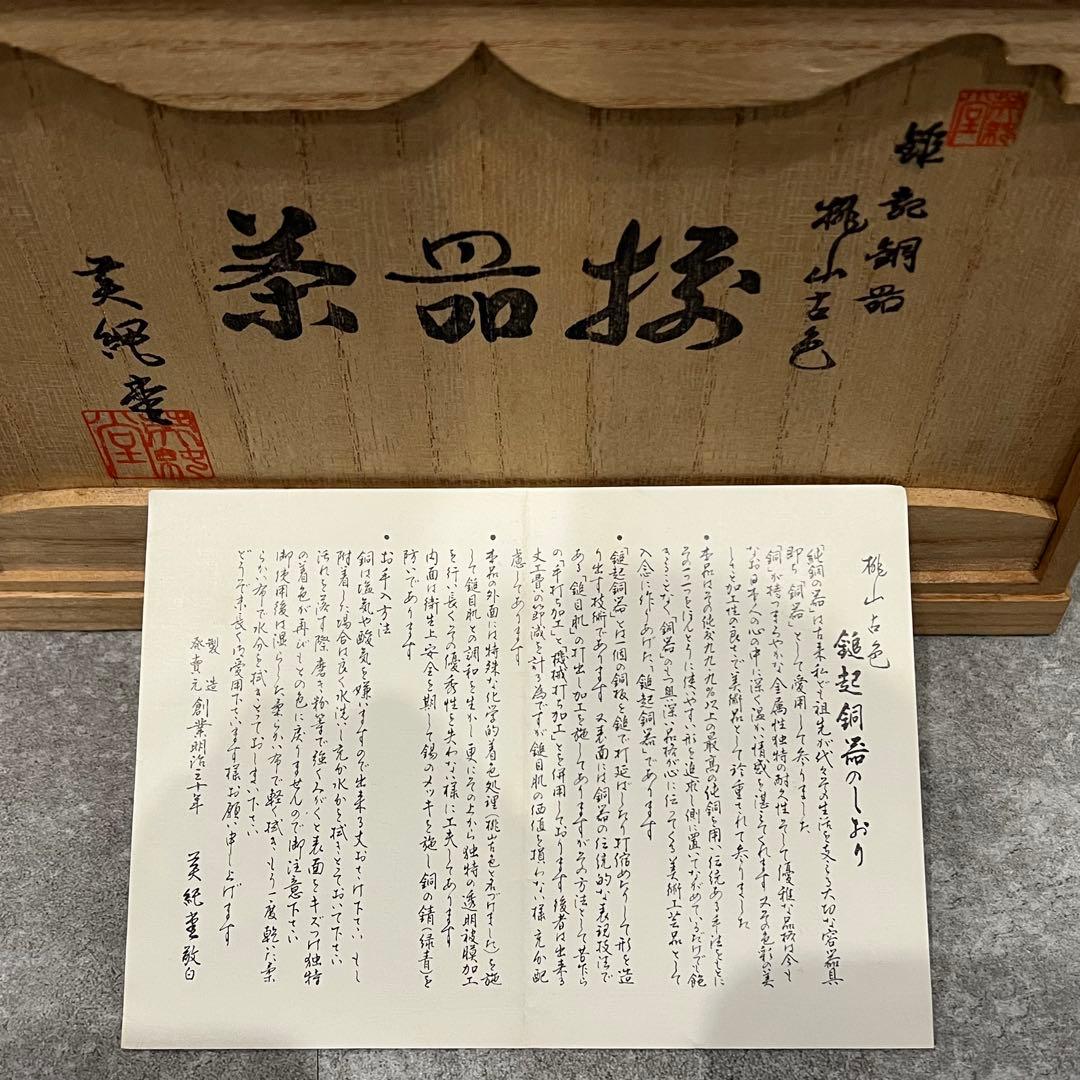 鎚起銅器
桃山古色
揃器茶
英紀堂
桃山古色
鎚起銅器のしおり
「純銅の器」は古来私ども祖先が代々その生活を支える大切な容器具
即ち「銅器」として愛用して参りました
「銅」が持つまろやかな金属性独特の耐久性そして優雅な品格は今も
なお日本人の心の中に深く温かい情感を湛えてくれます 又その色彩の美
しさと加工性の良さで美術品として珍重されて参りました
• 本品はその純度九九.九%以上の最高の純銅を用い伝統ある手法をもとに
その一つ一つをほんとうに使いやすい形を追求し側に置いてながめているだけでも飽
きることなく「銅器」のもつ奥深い品格が心に伝ってくる美術工芸品として
入念に作りあげた、鎚起銅器」であります
• 「鎚起銅器」とは一個の銅板を鎚で打延ばしたり打縮めたりして形を造
り出す技術であります 又表面には銅器の伝統的な表現技法で
ある「鎚目肌」の打出し加工を施してありますがその方法として昔から
の「手打ち加工」と「機械打ち加工」とを併用しております 後者は出来る
丈工費の節減を計る為ですが鎚目肌の価値を損わない様充分配
慮してあります
• 本品の外面には特殊な化学的着色処理(桃山古色と名づけました)を施
して鎚目肌との調和を生かし更にその上から独特の透明被膜加工
を行い長くその優秀性を失わない様に工夫してあります
内面は衛生上安全を期して錫のメッキを施し銅の錆(緑青)を
防いであります
• お手入方法
銅は塩気や酸気を嫌いますので出来る丈おさけ下さい もし
附着した場合は良く水洗いし充分水分を拭きとっておいて下さい
汚れを落す際磨き粉等で強くみがくと表面をキズつけ独特
の着色が再びもとの色に戻りませんので御注意下さい
御使用後は湿らした柔らかい布で軽く拭きもう一度乾いた柔
らかい布で水分を拭きとっておしまい下さい
どうぞ末長く御愛用下さいます様お願い申し上げます
製造
発売元 創業明治三十年 英紀堂敬白